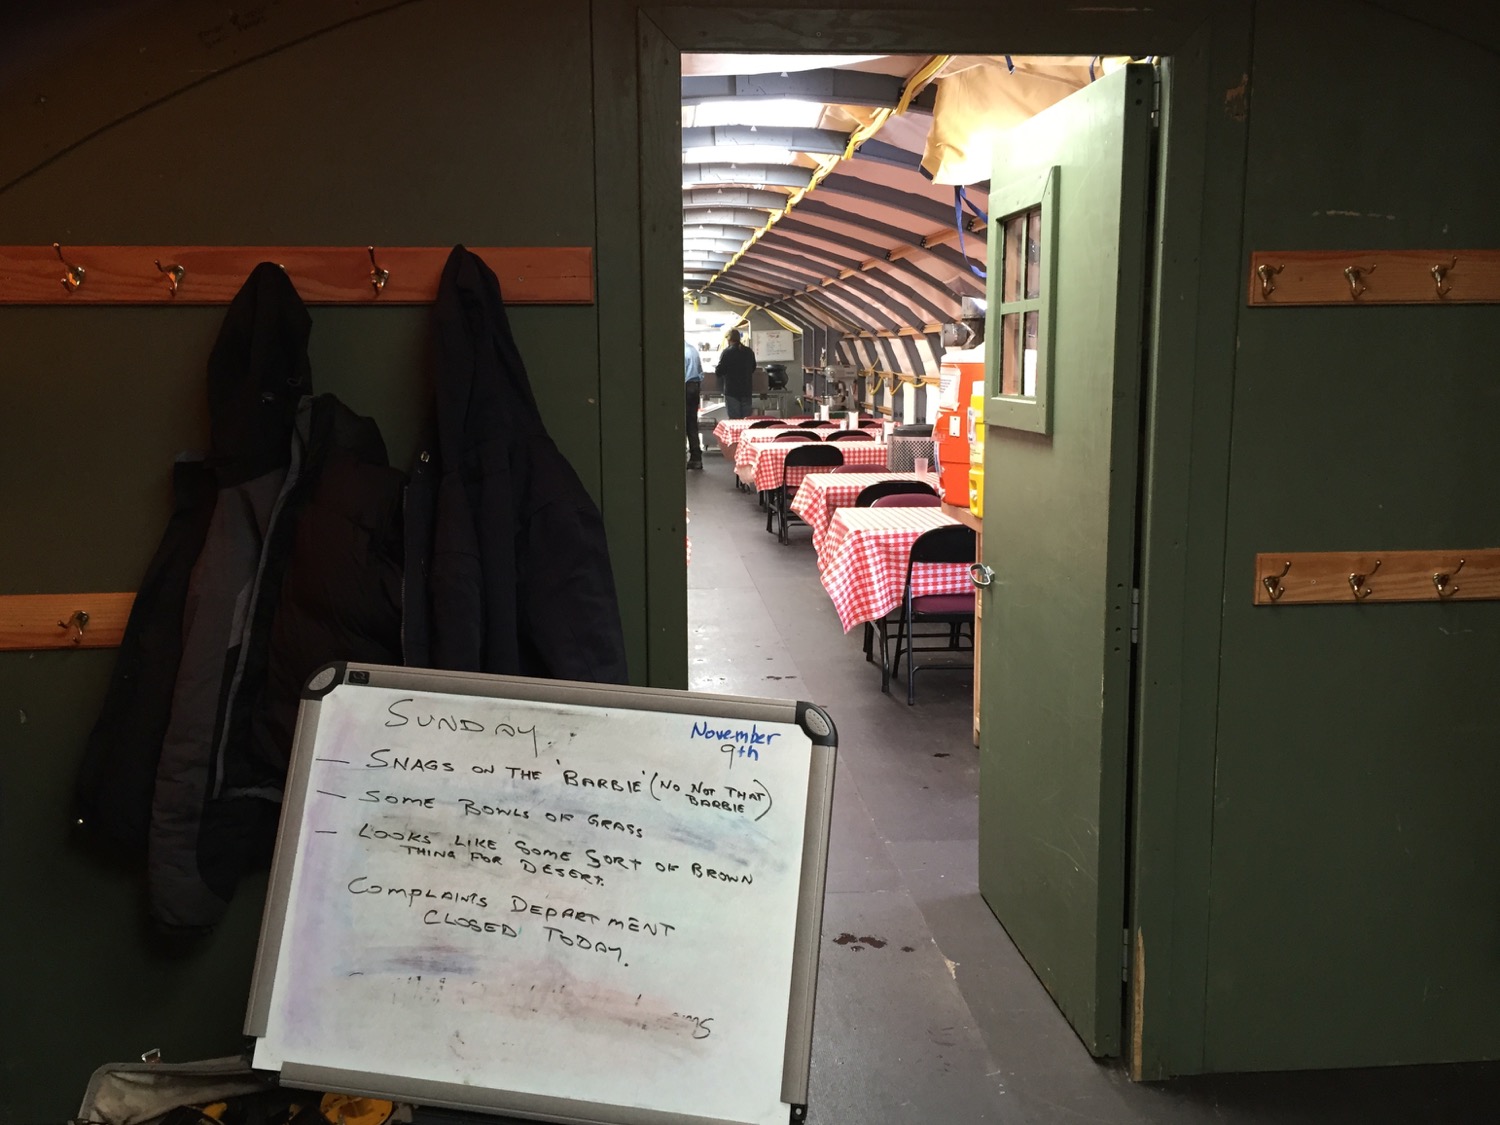 SUNDAY.
November
9th
— SNAGS ON THE 'BARBIE' (NO NOT THAT
BARBIE)
— SOME BOWLS OF GRASS
— LOOKS LIKE SOME SORT OF BROWN
THING FOR DESERT.
COMPLAINTS DEPARTMENT
CLOSED TODAY.